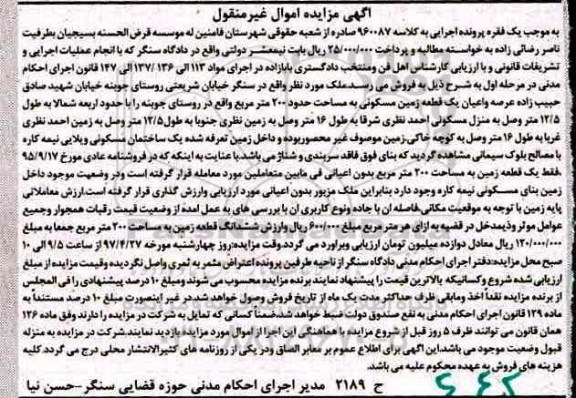 آگهی مزایده اموال غیر منقول
به موجب یک فقره پرونده اجرایی به کلاسه ۹۶۰۰۸۷ صادره از شعبه حقوقی شهرستان فامنین له موسسه قرض الحسنه بسیجیان بطرفیت
ناصر رضائی زاده به خواسته مطالبه و پرداخت ۲۵/۰۰۰/۰۰۰ ریال بابت نیمعشر دولتی واقع در دادگاه سنگر که با انجام عملیات اجرایی و
تشریفات قانونی و با ارزیابی کارشناس اهل فن ومنتخب دادگستری بابازاده در اجرای مواد ۱۱۳ الی ۱۳۶/ ۱۳۷ الی ۱۴۷ قانون اجرای احکام
مدنی در مرحله اول به شرح ذیل به فروش می رسد.ملک مورد نظر واقع در سنگر خیابان شریعتی روستای جوینه خیابان شهید صادق
حبیب زاده عرصه واعیان یک قطعه زمین مسکونی به مساحت حدود ۲۰۰ متر مربع واقع در روستای جوینه را با حدود اربعه شمالا به طول
۱۲/۵ متر وصل به منزل مسکونی احمد نظری شرقا به طول ۱۶ متر وصل به زمین نظری جنوبا به طول ۱۲/۵ متر وصل به زمین احمد نظری
غربا به طول ۱۶ متر وصل به کوچه خاکی،زمین موصوف غیر محصور بوده و داخل زمین تعرفه شده یک ساختمان مسکونی ویلایی نیمه کاره
با مصالح بلوک سیمانی مشاهده گردید که بنای فوق فاقد سربندی و شناژ می باشد.با عنایت به اینکه که در فروشنامه عادی مورخ ۹۵/۹/۱۷
،فقط یک قطعه زمین به مساحت ۲۰۰ متر مربع بدون اعیانی فی مابین متعاملین مورد معامله قرار گرفته است ودر وضعیت موجود داخل
زمین بنای مسکونی نیمه کاره وجود دارد بنابراین ملک مزبور بدون اعیانی مورد ارزیابی وارزش گذاری قرار گرفته است.ارزش معاملاتی
پایه زمین با توجه به موقعیت مکانی،فاصله ان با جاده ونوع کاربری ان با بررسی های به عمل امده از وضعیت قیمت رقبات همجوار وجمیع
عوامل موثر وذیمدخل در قضیه به ازای هر متر مربع مبلغ ۶۰۰/۰۰۰ ریال وارزش ششدانگ قطعه زمین به مساحت ۲۰۰ متر مربع جمعا به مبلغ
۱۲۰/۰۰۰/۰۰۰ ریال معادل دوازده میلیون تومان ارزیابی وبراورد می گردد.وقت مزایده:روز چهارشنبه مورخه ۹۷/۴/۲۷ از ساعت ۹/۵ الی ۱۰
صبح محل مزایده:دفتر اجرای احکام مدنی دادگاه سنگر از ناحیه طرفین پرونده اعتراض مثمر به ثمری واصل نگردیده وقیمت مزایده از مبلغ
ارزیابی شده شروع وکسانیکه بالاترین قیمت را پیشنهاد نمایند برنده مزایده محسوب می شوند ومبلغ ۱۰ درصد پیشنهادی را فی المجلس
از برنده مزایده نقداً اخذ ومابقی ظرف حداکثر مدت یک ماه از تاریخ فروش وصول خواهد شد.در غیر اینصورت مبلغ ۱۰ درصد مستنداً به
ماده ۱۲۹ قانون اجرای احکام مدنی به نفع صندوق دولت ضبط خواهد شد.ضمناً کسانی که تمایل به شرکت در مزایده را دارند وفق ماده ۱۲۶
همان قانون می توانند ظرف ۵ روز قبل از شروع مزایده با هماهنگی این اجرا از اموال مورد مزایده بازدید نمایند.شرکت در مزایده به منزله
قبول وضعیت موجود می باشد.این آگهی برای اطلاع عموم بر معابر الصاق ودر یکی از روزنامه های کثیرالانتشار محلی درج می گردد.کلیه
هزینه های فروش به عهده محکوم علیه می باشد.
ح ۲۱۸۹ مدیر اجرای احکام مدنی حوزه قضایی سنگر-حسن نیا